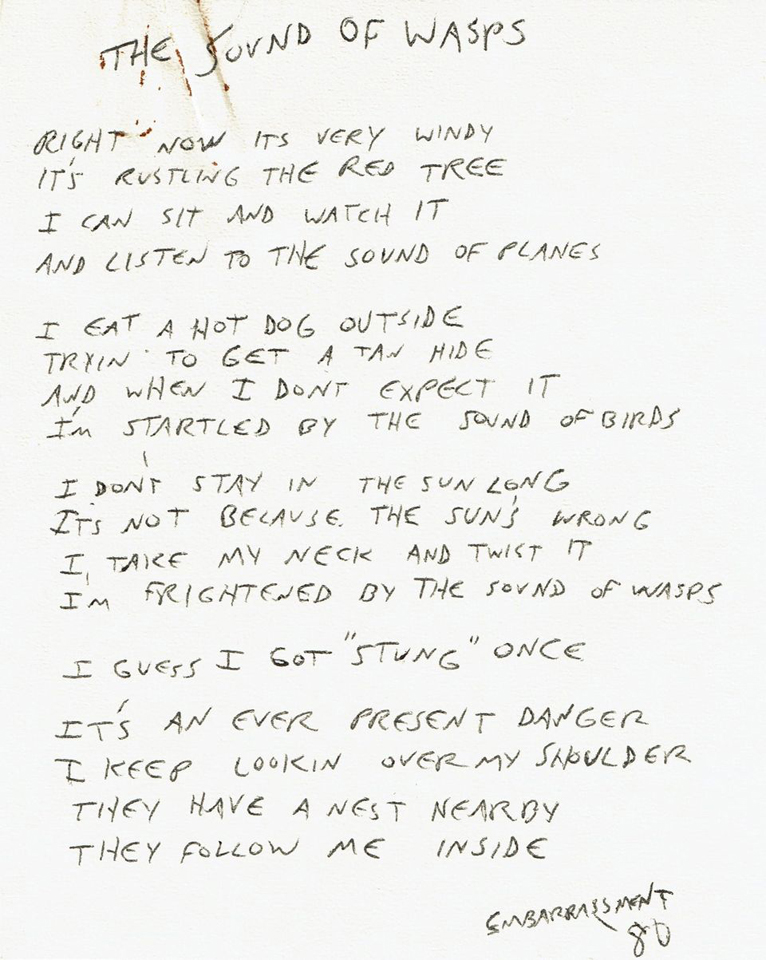 THE SOUND OF WASPS
RIGHT NOW ITS VERY WINDY
IT'S RUSTLING THE RED TREE
I CAN SIT AND WATCH IT
AND LISTEN TO THE SOUND OF PLANES
I EAT A HOT DOG OUTSIDE
TRYIN' TO GET A TAN HIDE
AND WHEN I DONT EXPECT IT
I'M STARTLED BY THE SOUND OF BIRDS
I DON'T STAY IN THE SUN LONG
ITS NOT BECAUSE THE SUN'S WRONG
I TAKE MY NECK AND TWIST IT
I'M FRIGHTENED BY THE SOUND OF WASPS
I GUESS I GOT "STUNG" ONCE
IT'S AN EVER PRESENT DANGER
I KEEP LOOKIN OVER MY SHOULDER
THEY HAVE A NEST NEARBY
THEY FOLLOW ME INSIDE
EMBARRASSMENT
80